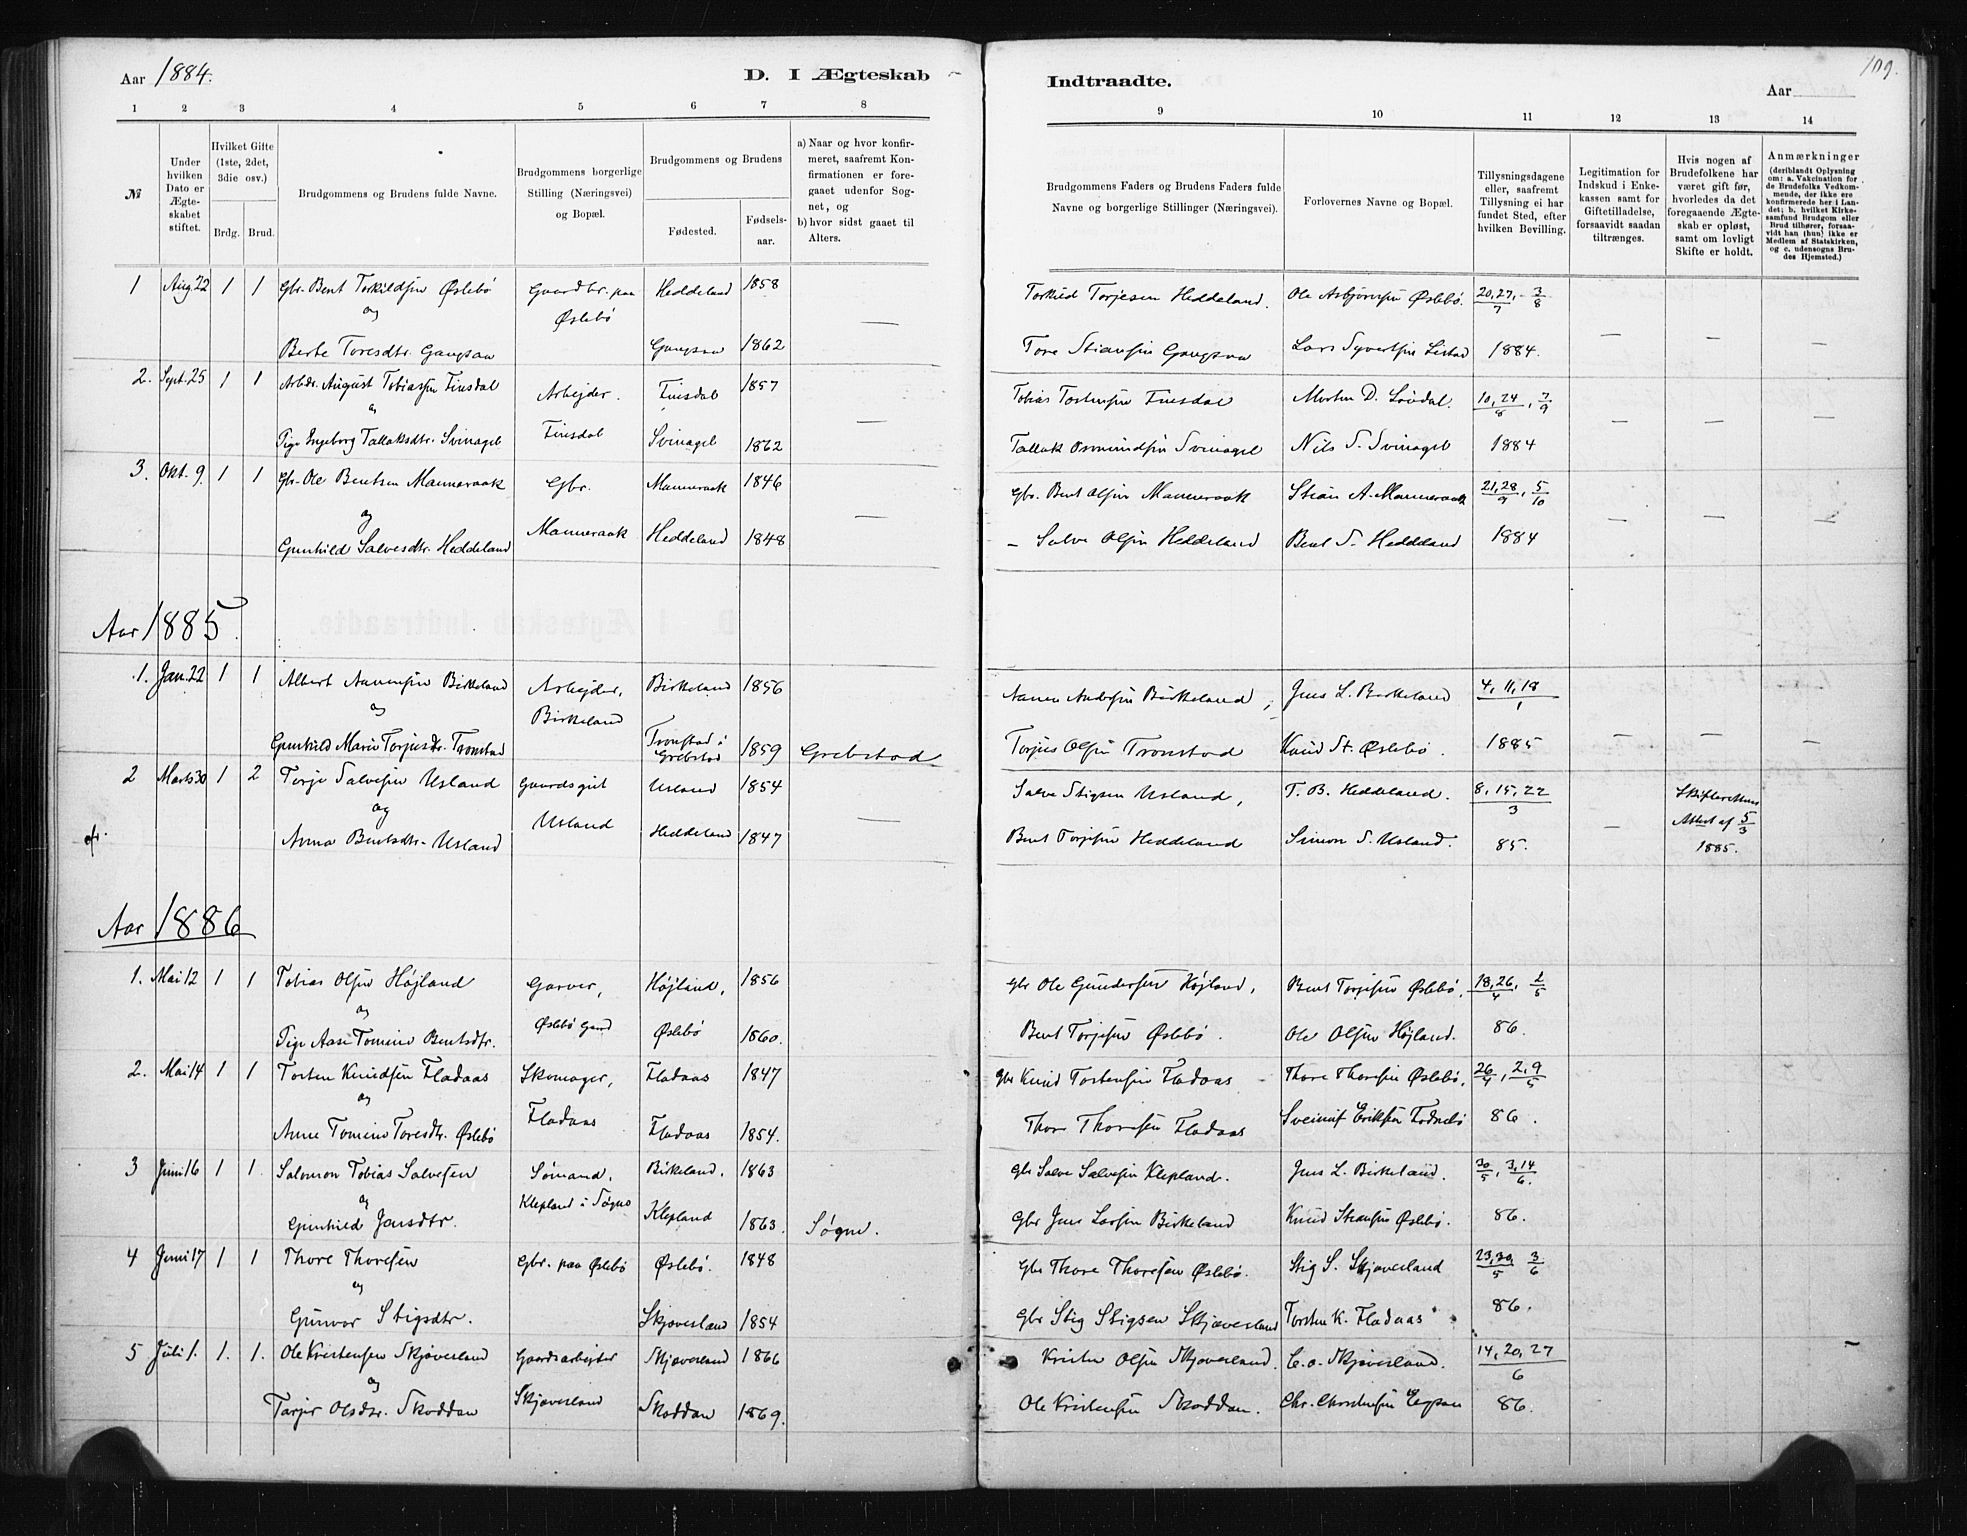 Aar 1884.
D. I Ægteskab
Indtraadte.
Aar
109.
1 2 3 4 5 6 7 8 9 10 11 12 13 14
№
Under hvilken Dato er Ægteskabet stiftet.
Hvilket Gifte (1ste, 2det, 3die osv.)
Brdg. Brud.
Brudgommens og Brudens fulde Navne.
Brudgommens borgerlige Stilling (Næringsvei) og Bopæl.
Brudgommens og Brudens
Fødested.
Fødsels-aar.
a) Naar og hvor konfirmeret, saafremt Konfirmationen er foregaaet udenfor Sognet, og
b) hvor sidst gaaet til Alters.
Brudgommens Faders og Brudens Faders fulde Navne og borgerlige Stillinger (Næringsvei).
Forlovernes Navne og Bopæl.
Tillysningsdagene eller, saafremt Tillysning ei har fundet Sted, efter hvilken Bevilling.
Legitimation for Indskud i Enkekassen samt for Giftetilladelse, forsaavidt saadan tiltrænges.
Hvis nogen af Brudefolkene har været gift før, hvorledes da det foregaaende Ægteskab er opløst, samt om lovligt Skifte er holdt.
Anmærkninger (deriblandt Oplysning om: a. Vakcination for de Brudefolks Vedkommende, der ikke ere konfirmerede her i Landet; b. hvilket Kirkesamfund Brudgom eller Brud tilhører, forsaavidt han (hun) ikke er Medlem af Statskirken, og c. udensogns Brudes Hjemsted.)
1 Aug. 22 1 1 Gbr. Bent Torkildsen Øslebö Gaardbr. paa Heddeland 1858 Torkild Torjesen Heddeland. Ole Asbjørnsen Øslebö. 20, 27/7 - 3/8
og Øslebö
Berte Toresdtr. Gangsaa Gangsaa 1862 — Tore Stiansen Gangsaa Lars Syvertsen Listad 1884. — — —
2. Sept. 25 1 1 Arbdr. August Tobiassen Finsdal Arbejder. Finsdal 1857 Tobias Tostensen Finsdal Morten D. Lövdal. 10, 24/8, 7/9
og Finsdal
Pige Ingeborg Tallaksdtr. Svinagel Svinagel 1862 — Tallak Osmundsen Svinagel Nils S. Svinagel 1884 — — —
3. Okt. 9 1 1 Gbr. Ole Bentsen Manneraak Gbr. Manneraak 1846 Gbr. Bent Olsen Manneraak Stian A. Manneraak 21, 28/9, 5/10
og Manneraak
Gunhild Salvesdtr. Heddeland Heddeland 1848 — – Salve Olsen Heddeland Bent S. Heddeland 1884 — — —
Aar 1885.
1. Jan. 22 1 1 Albert Aanensen Birkeland Arbejder, Birkeland 1856 Aanen Andersen Birkeland, Jens L. Birkeland 4, 11, 18/1
og Birkeland
Gunhild Marie Torjesdtr. Tronstad Tronstad i Grebstad 1859 Grebstad Torjus Olsen Tronstad Knud St. Øslebö. 1885 — — —
2 Marts 30 1 2 Torje Salvesen Usland Gaardsgut Usland 1854 Salve Stigsen Usland, T. B. Heddeland. 8, 15, 22/3 Skifterettens
og Usland — Attest af 5/3
Anna Bentsdtr. Usland Heddeland 1847 Bent Torjesen Heddeland Simon S. Usland. 85. — 1885.
Aar 1886
1. Mai 12 1 1 Tobias Olsen Højland Garver, Højland, 1856 Gbr Ole Gundersen Højland, Bent Torjesen Øslebö, 18, 26/4, 2/5
og Øslebö Gaard
Pige Aase Tomine Bentsdtr. Øslebö 1860. Bent Torjesen Øslebö. Ole Olsen Højland. 86.
2. Mai 14 1 1 Torsten Knudsen Fladaas Skomager, Fladaas 1847 Gbr Knud Torstensen Fladaas Thore Thoresen Øslebö, 26/4, 2, 9/5
og Fladaas
Anne Tomine Toresdtr. Øslebö Fladaas 1854. Thore Thoresen Fladaas Eriksen 86.
3 Juni 16 1 1. Salomon Tobias Salvesen Sømand, Birkeland. 1863 Gbr Salve Salvesen Klepland. Jens L. Birkeland. 30/5, 3, 14/6.
og Klepland i Søgne
Gunhild Jensdtr. Klepland 1863. Søgne. Gbr Jens Larsen Birkeland Knud Stiansen Øslebö. 86.
4 Juni 17 1 1 Thore Thoresen Gbr. paa Øslebö Øslebö. 1848 Gbr Thore Thoresen Øslebö. Stig S. Skjæveland 23, 30/5 3/6
og
Gunvor Stigsdtr. Skjævesland 1854 Gbr Stig Stigsen Skjævesland Torsten K. Fladaas 86.
5 Juli 1. 1. 1. Ole Kristensen Skjævesland Gaardsarbejder Skjævesland 1866 Kristen Olsen Skjævesland. C. O. Skjævesland. 14, 20, 27/6
og Skjævesland
Tarjer Olsdtr. Skoddan Skoddan 1869. Ole Kristensen Skoddan. Chr. Christensen 86.